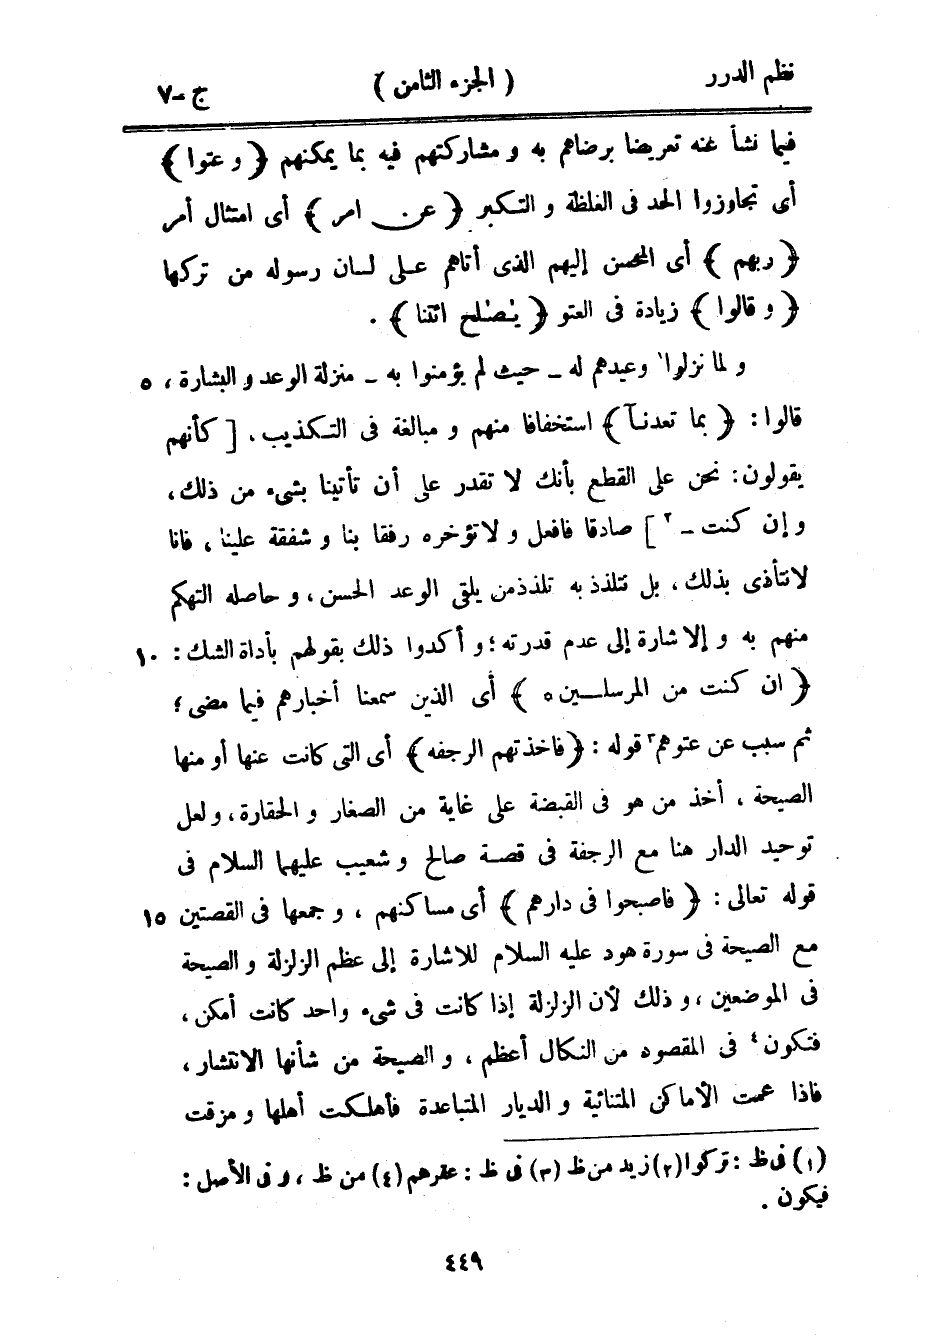 نظم الدرر ( الجزء الثامن ) ج -٧
فيما نشأ عنه تعريضا برضاهم به و مشاركتهم فيه بما يمكنهم ﴿ و عتوا ﴾
أى تجاوزوا الحد فى الغلظة و التكبر ﴿ عن امر ﴾ أى امتثال أمر
﴿ ربهم ﴾ أى المحسن إليهم الذى أتاهم على لسان رسوله من تركها
﴿ و قالوا ﴾ زيادة فى العتو ﴿ يٰصٰلح ائتنا ﴾ .
و لما نزلوا١ وعيدهم له - حيث لم يؤمنوا به - منزلة الوعد و البشارة ، ٥
قالوا : ﴿ بما تعدنآ ﴾ استخفافا منهم و مبالغة فى التكذيب ، [ كأنهم
يقولون : نحن على القطع بأنك لا تقدر على أن تأتينا بشىء من ذلك ،
و إن كنت - ٢ ] صادقا فافعل و لا تؤخره رفقا بنا و شفقة علينا ، فانا
لا نتأذى بذلك ، بل نتلذذ به تلذذ من يلقى الوعد الحسن ، و حاصله التهكم
منهم به و الاشارة إلى عدم قدرته ؛ و أكدوا ذلك بقولهم بأداة الشك : ١٠
﴿ ان كنت من المرسلين ٥ ﴾ أى الذين سمعنا أخبارهم فيما مضى ؛
ثم سبب عن عتوهم٣ قوله : ﴿ فاخذتهم الرجفه ﴾ أى التى كانت عنها أو منها
الصيحة ، أخذ من هو فى القبضة على غاية من الصغار و الحقارة ، و لعل
توحيد الدار هنا مع الرجفة فى قصة صالح و شعيب عليهما السلام فى
قوله تعالى : ﴿ فاصبحوا فى دارهم ﴾ أى مساكنهم ، و جمعها فى القصتين ١٥
مع الصيحة فى سورة هود عليه السلام للاشارة إلى عظم الزلزلة و الصيحة
فى الموضعين ، و ذلك لأن الزلزلة إذا كانت فى شىء واحد كانت أمكن ،
فتكون٤ فى المقصود من النكال أعظم ، و الصيحة من شأنها الانتشار ،
فاذا عمت الأماكن المتنائية و الديار المتباعدة فأهلكت أهلها و مزقت
(١) فى ظ : تركوا (٢) زيد من ظ (٣) فى ظ : عقرهم (٤) من ظ ، و فى الأصل :
فيكون .
٤٤٩